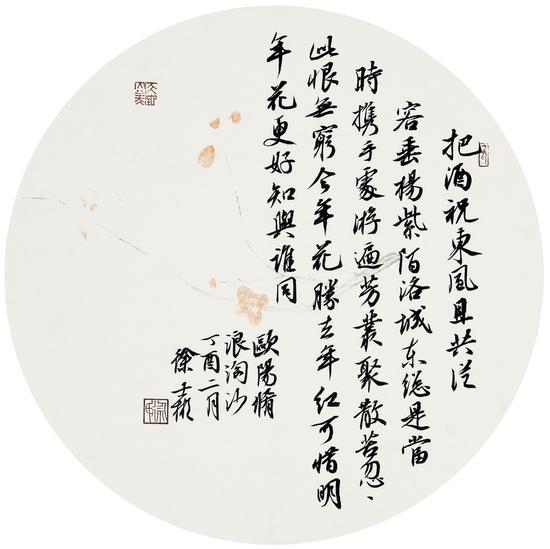 把酒祝東風且共從
容垂楊紫陌洛城东總是當
時携手處游遍芳叢聚散苦忽〻
此恨無窮今年花勝去年红可惜明
年花更好知與誰同
歐陽脩
浪淘沙
丁酉二月
徐